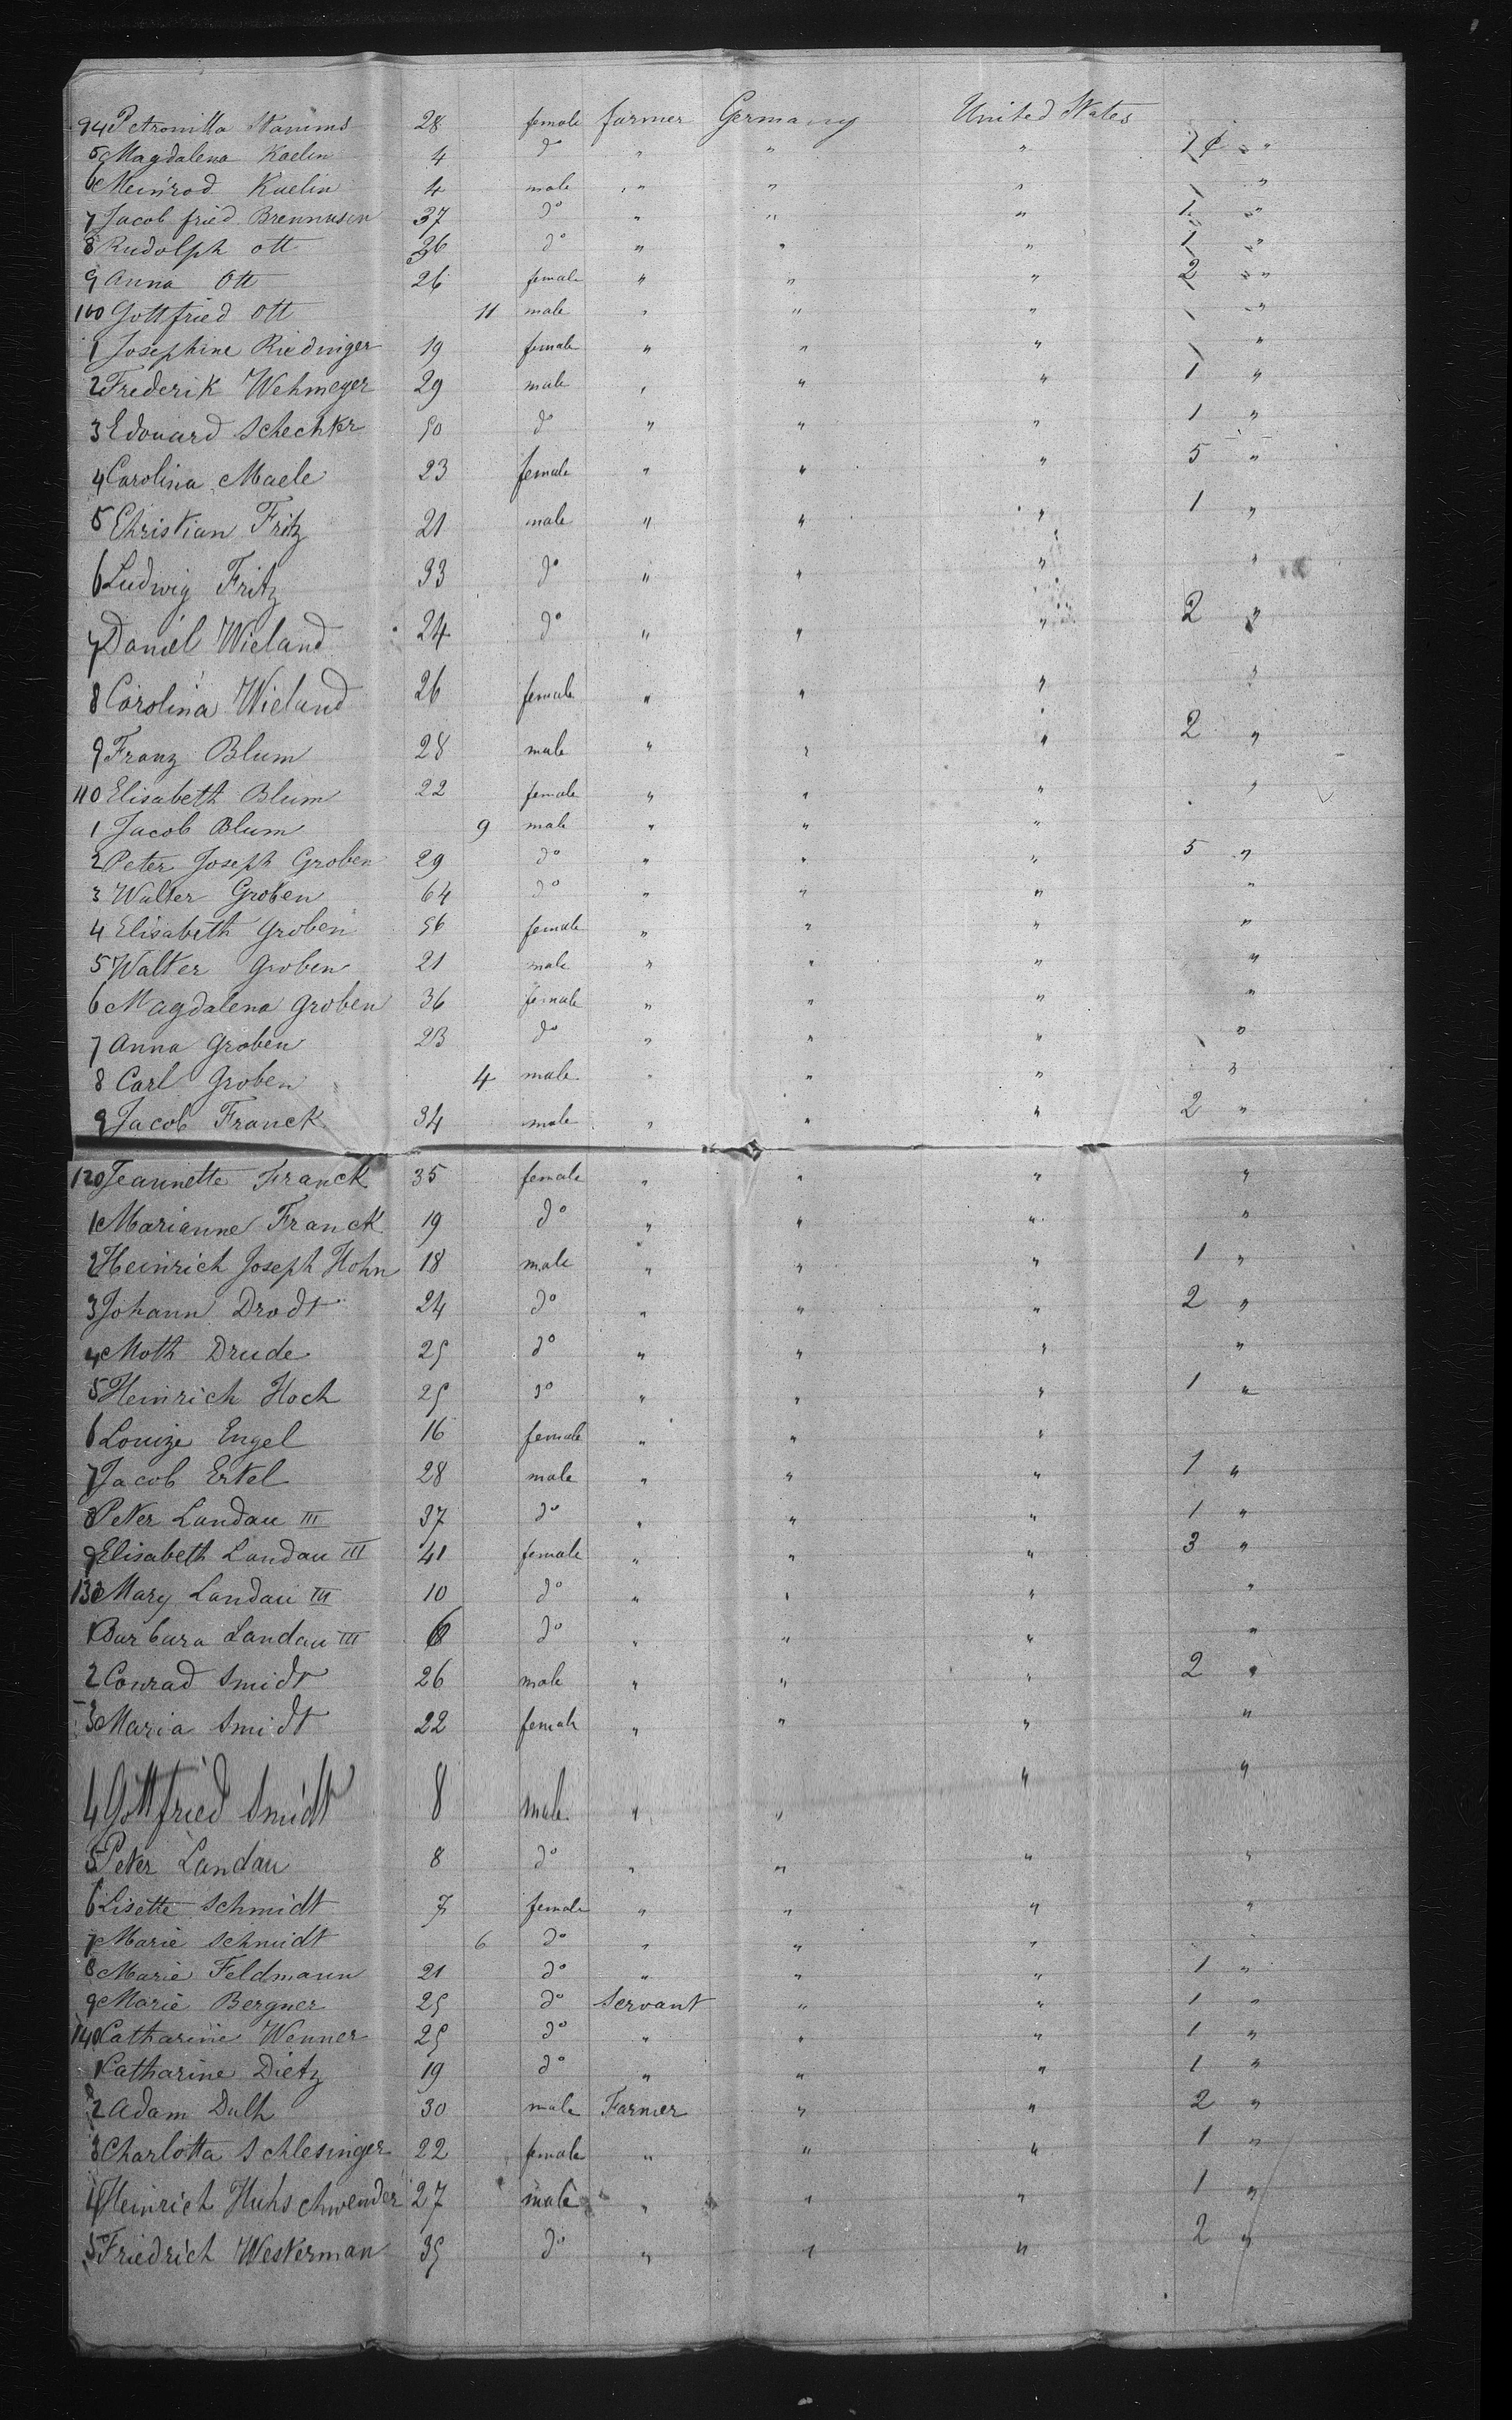 94 Petronilla Stamms 28 female farmer Germany United States
5 Magdalena Kaelin 4 do " " " 1 ¢ "
6 Meinrad Kaelin 4 male " " " "
7 Jacob fried. Brennusen 37 do " " " 1 "
8 Rudolph Ott 36 do " " " 1 "
9 Anna Ott 26 female " " " 2 "
100 Gottfried Ott 11 male " " " "
1 Josephine Riedinger 19 female " " " "
2 Frederik Wehmeyer 29 male " " " 1 "
3 Edouard Schechter 50 do " " " 1 "
4 Carolina Maele 23 female " " " 5 "
5 Christian Fritz 21 male " " " 1 "
6 Ludwig Fritz 33 do " " " "
7 Daniel Wieland 24 do " " " 2 "
8 Carolina Wieland 26 female " " " "
9 Franz Blum 28 male " " " 2 "
110 Elisabeth Blum 22 female " " " "
1 Jacob Blum 9 male " " "
2 Peter Joseph Groben 29 do " " " 5 "
3 Walter Groben 64 do " " " "
4 Elisabeth Groben 56 female " " " "
5 Walter Groben 21 male " " " "
6 Magdalena Groben 36 female " " " "
7 Anna Groben 23 do " " " "
8 Carl Groben 4 male " " " "
9 Jacob Franck 34 male " " " 2 "
120 Jeannette Franck 35 female " " " "
1 Marianne Franck 19 do " " " "
2 Heinrich Joseph Hohn 18 male " " " 1 "
3 Johann Drodt 24 do " " " 2 "
4 Moth Drude 25 do " " " "
5 Heinrich Hoch 25 do " " " 1 "
6 Louize Engel 16 female " " "
7 Jacob Ertel 28 male " " " 1 "
8 Peter Landau III 37 do " " " 1 "
9 Elisabeth Landau III 41 female " " " 3 "
130 Mary Landau III 10 do " " " "
1 Barbara Landau III 6 do " " " "
2 Conrad Smidt 26 male " " " 2 "
3 Maria Smidt 22 female " " " "
4 Gottfried Smidt 8 male " " " "
5 Peter Landau 8 do " " " "
6 Lisette Schmidt 7 female " " " "
7 Marie Schmidt 6 do " " " "
8 Marie Feldmann 21 do " " " 1 "
9 Marie Bergner 25 do Servant " " 1 "
140 Catharine Wenner 25 do " " " 1 "
1 Catharine Dietz 19 do " " " 1 "
2 Adam Dulh 30 male Farmer " " 2 "
3 Charlotta Schlesinger 22 female " " " 1 "
4 Heinrich Huhschwender 27 male " " " 1 "
5 Friedrich Westerman 35 do " " " 2 "